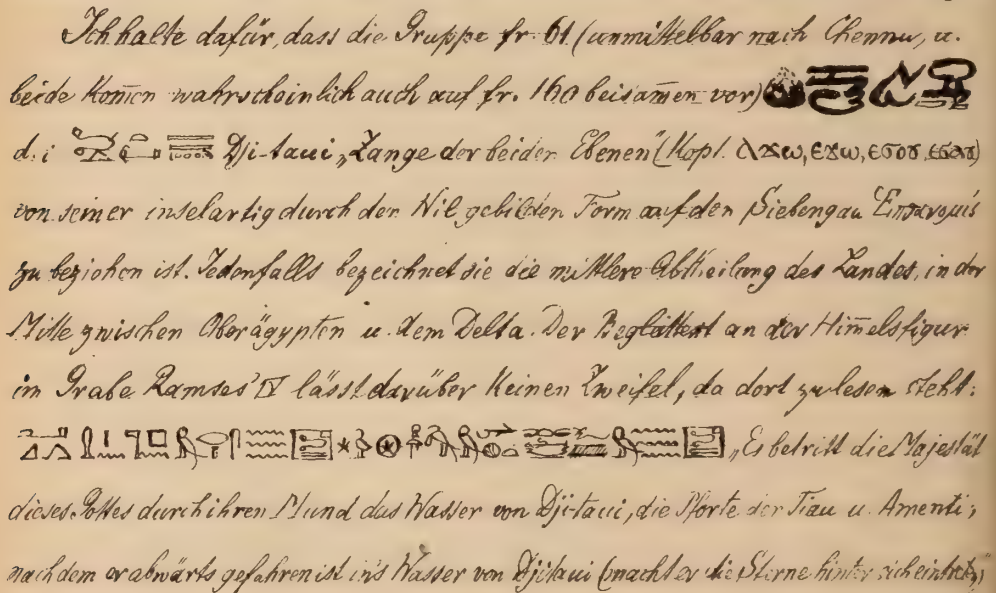 Ich halte dafür, dass die Gruppe fr. 61 (unmittelbar nach Chennu, u.
beide kom̅en wahrscheinlich auch auf fr. 160 beisam̅en vor)
d. i Dji-taui „Zange der beider Ebenen" (Kopt. ⲉϫⲱ,
von seiner inselartig durch den Nil gebildeten Form auf den Siebengau
zu beziehen ist. Jedenfalls bezeichnet sie die mittlere Abtheilung des Landes, in der
Mitte zwischen Oberägypten u. dem Delta. Der Begleittext an der Him̅elsfigur
im Grabe Ramses' IV lässt darüber keinen Zweifel, da dort zu lesen steht:
„Es betritt die Majestät
dieses Gottes durch ihren Mund das Wasser von Dji-taui, die Pforte der Tiau u. Amenti,
nachdem er abwärts gefahren ist in's Wasser von Djitaui (macht er die Sterne hinter sich eintreten)"